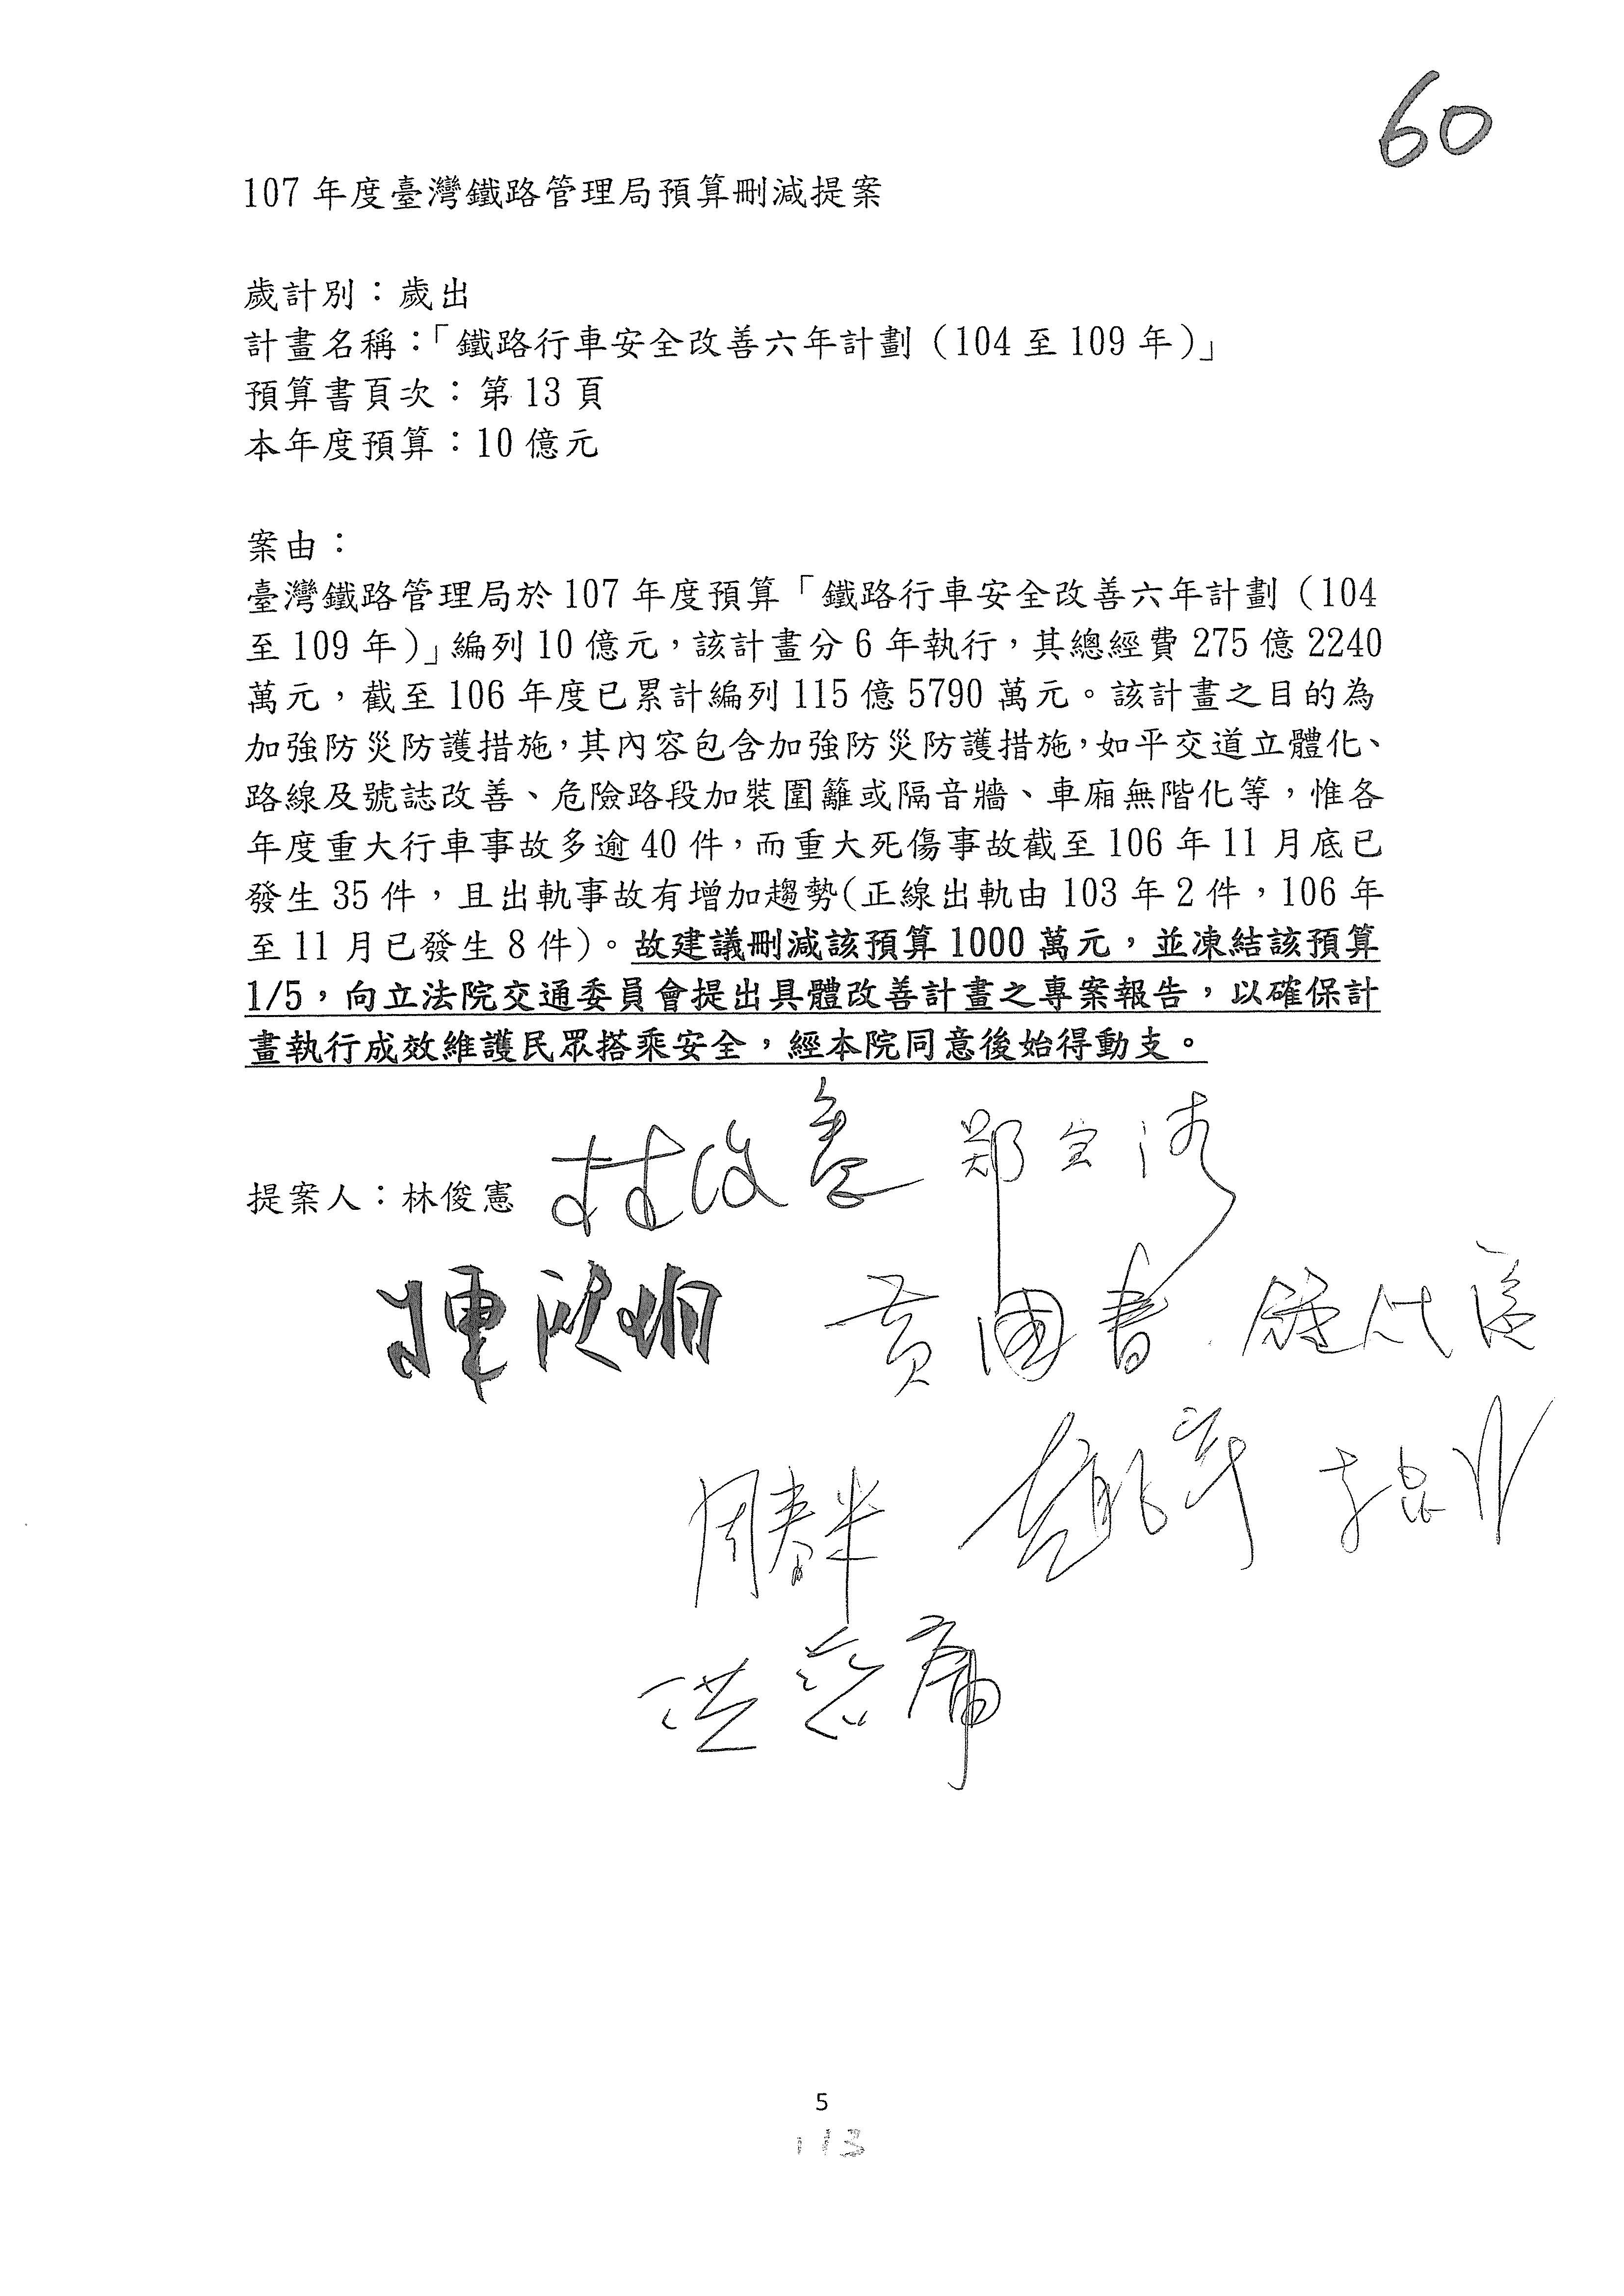 60
107 年度臺灣鐵路管理局預算刪減提案
歲計別：歲出
計畫名稱：「鐵路行車安全改善六年計劃（104 至 109 年）」
預算書頁次：第 13 頁
本年度預算：10 億元
案由：
臺灣鐵路管理局於 107 年度預算「鐵路行車安全改善六年計劃（104
至 109 年）」編列 10 億元，該計畫分 6 年執行，其總經費 275 億 2240
萬元，截至 106 年度已累計編列 115 億 5790 萬元。該計畫之目的為
加強防災防護措施，其內容包含加強防災防護措施，如平交道立體化、
路線及號誌改善、危險路段加裝圍籬或隔音牆、車廂無階化等，惟各
年度重大行車事故多逾 40 件，而重大死傷事故截至 106 年 11 月底已
發生 35 件，且出軌事故有增加趨勢(正線出軌由 103 年 2 件，106 年
至 11 月已發生 8 件)。故建議刪減該預算 1000 萬元，並凍結該預算
1/5，向立法院交通委員會提出具體改善計畫之專案報告，以確保計
畫執行成效維護民眾搭乘安全，經本院同意後始得動支。
提案人：林俊憲 林俊憲 鄭宝清
陳欧珀 黃國書
5
113